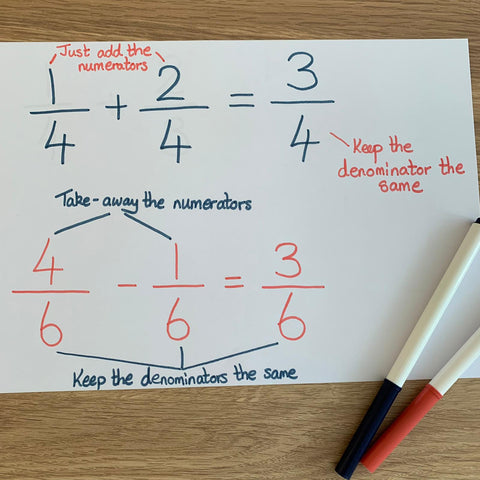 Just add the
numerators
1/4 + 2/4 = 3/4
Keep the
denominator the
same
Take-away the numerators
4/6 - 1/6 = 3/6
Keep the denominators the same